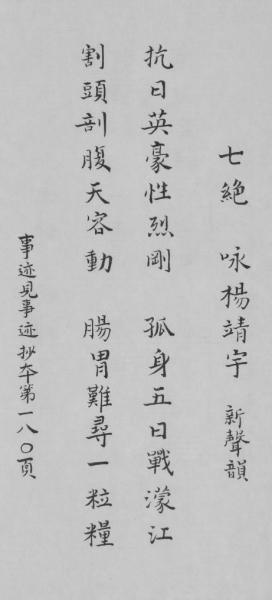 七絕 咏楊靖宇 新聲韻
抗日英豪性烈剛 孤身五日戰濛江
割頭剖腹天容動 腸胃難尋一粒糧
事迹見事迹抄本第一八〇頁